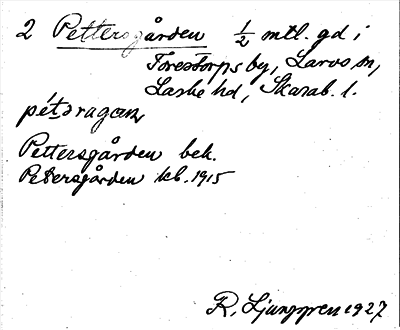 2 Pettersgården 1/2 mtl. gd i
Torestorps by, Larvs sn,
Laske hd, Skarab. l.
pétəragan,
Pettersgården bek.
Petersgården kb. 1915
R. Ljunggren 1927